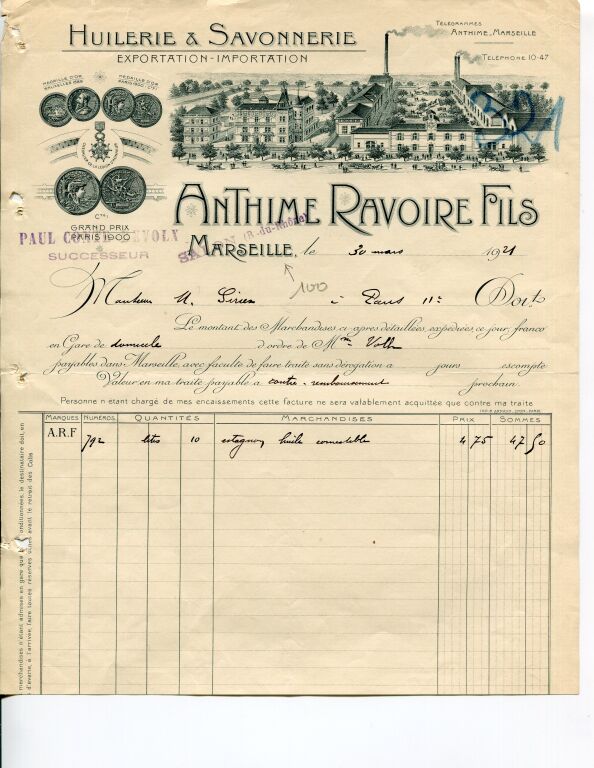 HUILERIE & SAVONNERIE
EXPORTATION-IMPORTATION
TÉLÉGRAMMES
ANTHIME_MARSEILLE
TÉLÉPHONE 10-47
MÉDAILLE D'OR
BRUXELLES 1888
MÉDAILLE D'OR
PARIS 1900
321
GRAND PRIX
PARIS 1900
ANTHIME RAVOIRE FILS
PAUL
SUCCESSEUR
SALON (B.-du-Rhône)
MARSEILLE, le 30 mars 1921
100
Monsieur à Paris 11e Doit
Le montant des Marchandises ci-après détaillées, expédiées ce jour, franco
en Gare de domicile d'ordre de M
payables dans Marseille, avec faculté de faire traite sans dérogation à jours escompte
Valeur en ma traite payable à contre-remboursement prochain
Personne n'étant chargé de mes encaissements cette facture ne sera valablement acquittée que contre ma traite
MARQUES NUMÉROS QUANTITÉS MARCHANDISES PRIX SOMMES
A.R.F 792 10 estagnon huile comestible 4 75 47 50
marchandises n'étant admises en gare que conditionnées, le destinataire doit, en
d'avarie, à l'arrivée, faire toutes réserves avant le retrait des Colis